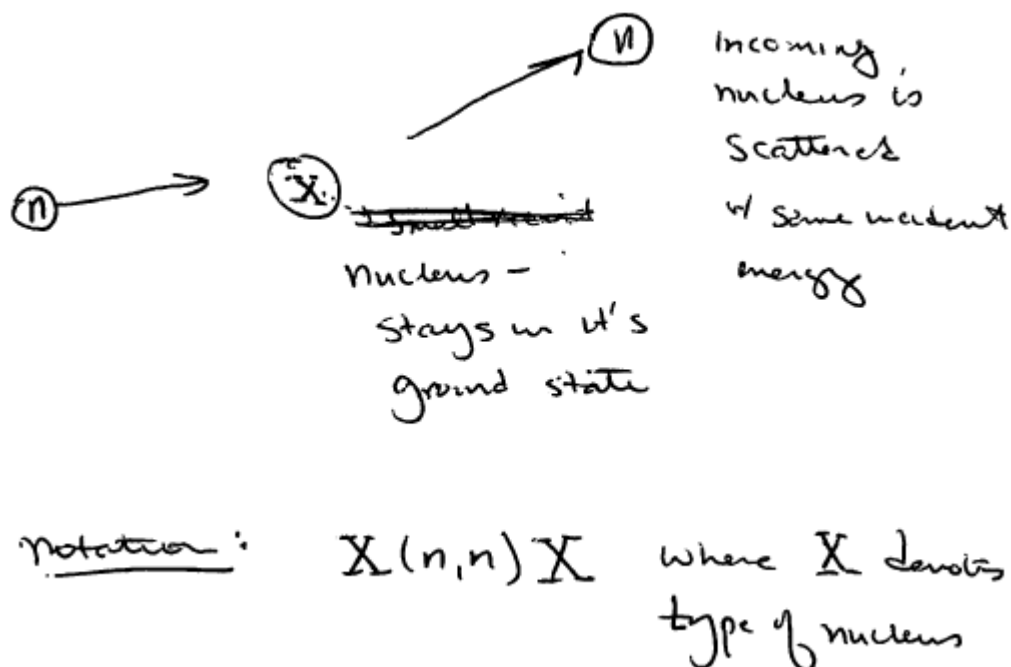 n
incoming
nucleus is
scattered
w/ same incident
energy
n
X
nucleus -
stays in it's
ground state
notation: X(n,n)X where X denotes
type of nucleus